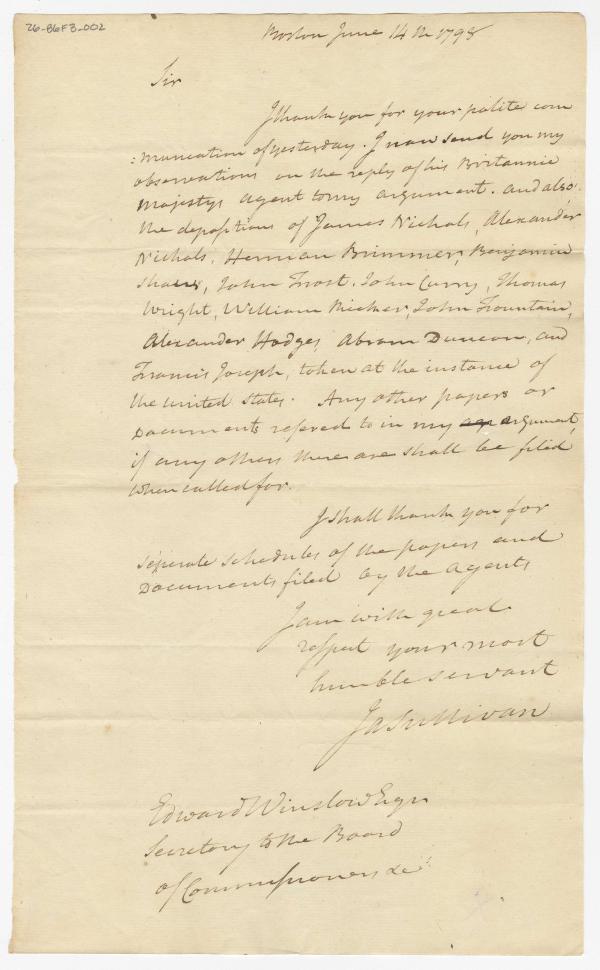 26-B6F3-002
Boston June 14th 1798
Sir
I thank you for your polite com
:munication of yesterday. I now send you my
observations on the reply of his Britannic
Majestys agent to my argument. and also
the depositions of James Nichols, Alexander
Nichols, Herman Brimmer, Benjamin
John Frost, John Curry, Thomas
Wright, William Ricker, John Fountain,
Alexander Hodges, Abram Duncan, and
Francis Joseph, taken at the instance of
the united states. Any other papers or
Documents refered to in my argument,
if any others there are shall be filed
when called for.
I shall thank you for
seperate schedules of the papers and
Documents filed by the Agents
I am with great
respect your most
humble servant
Ja Sullivan
Edward Winslow Esqr
Secretary to the Board
of Commissioners &c